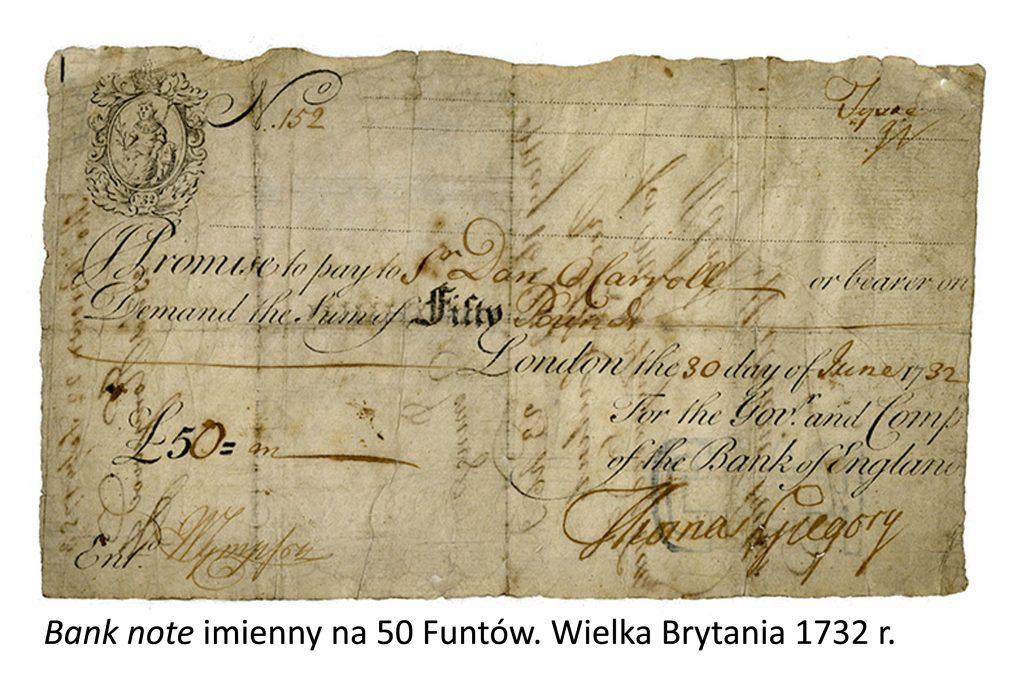 No. 152
I Promise to pay to Sr. Dan O Carroll or bearer on
Demand the Sum of Fifty Pounds
London the 30 day of June 1732
£50=
For the Govr. and Compa
of the Bank of England
Thomas Gregory
Entd.
Bank note imienny na 50 Funtów. Wielka Brytania 1732 r.